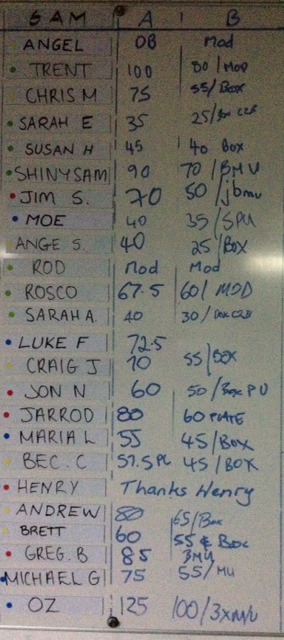 6AM A B
ANGEL OB Mod
TRENT 100 80/MOD
CHRIS M 75 55/BOX
SARAH E 35 25/
SUSAN H 45 40 Box
SHINYSAM 90 70/BMU
JIM S. 70 50/jbmu
MOE 40 35/SPU
ANGE S. 40 25/BOX
ROD Mod Mod
ROSCO 67.5 60/MOD
SARAH A. 40 30/
LUKE F 72.5
CRAIG J 70 55/BOX
JON N 60 50/Box PU
JARROD 80 60 PLATE
MARIA L 55 45/BOX
BEC. C 57.5 PL 45/BOX
HENRY Thanks Henry
ANDREW 80 65/Box
BRETT 60 55 & Box
GREG. B 85 3MU
MICHAEL G 75 55/MU
OZ 125 100/3xm/u